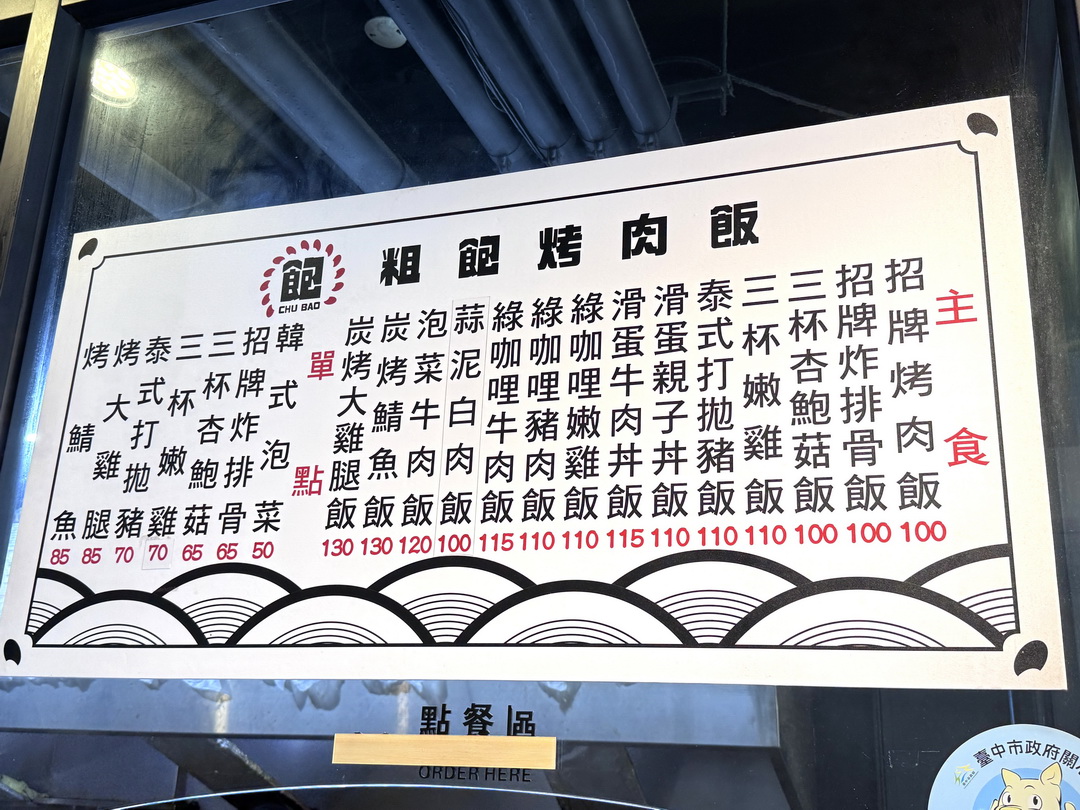 飽
CHU BAO
粗飽烤肉飯
主食
招牌烤肉飯 100
招牌炸排骨飯 100
三杯杏鮑菇飯 100
三杯嫩雞飯 110
泰式打拋豬飯 110
滑蛋親子丼飯 110
滑蛋牛肉丼飯 115
綠咖哩嫩雞飯 110
綠咖哩豬肉飯 110
綠咖哩牛肉飯 115
蒜泥白肉飯 100
泡菜牛肉飯 120
炭烤鯖魚飯 130
炭烤大雞腿飯 130
單點
韓式泡菜 50
招牌炸排骨 65
三杯杏鮑菇 65
三杯嫩雞 70
泰式打拋豬 70
烤大雞腿 85
烤鯖魚 85
點餐區
ORDER HERE
臺中市政府關